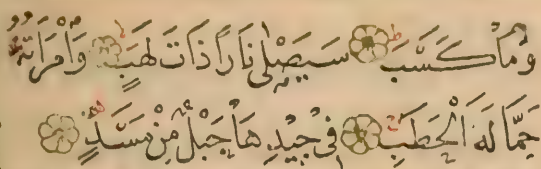 وَمَا كَسَبَ سَيَصْلَىٰ نَارًا ذَاتَ لَهَبٍ وَامْرَأَتُهُ
حَمَّالَةَ الْحَطَبِ فِي جِيدِهَا حَبْلٌ مِنْ مَسَدٍ